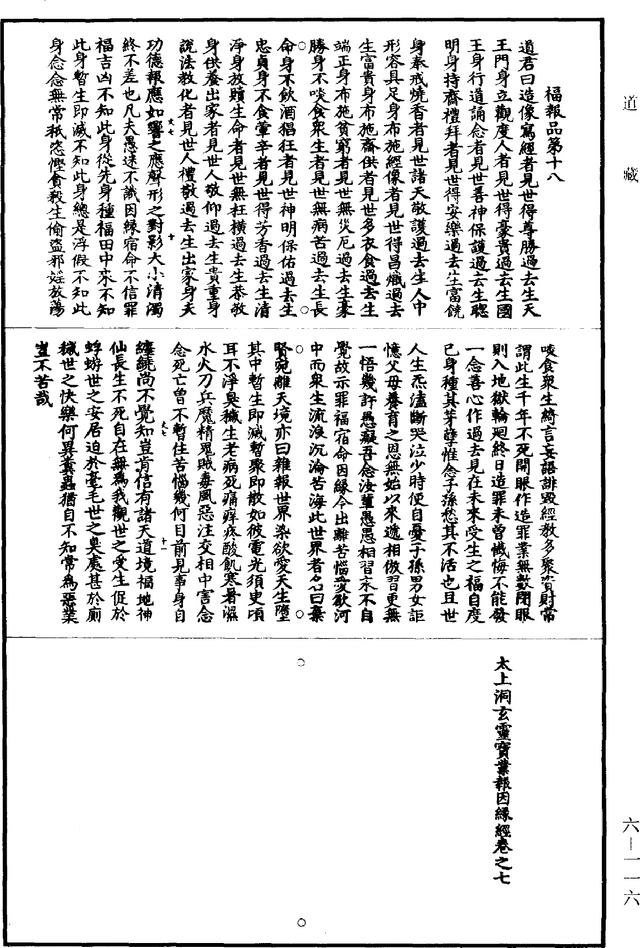 道藏
福報品第十八
道君曰造像寫經者見世得尊勝過去生天
王門身立觀度人者見世得豪貴過去生國
王身行道誦念者見世善神保護過去生聰
明身持齋禮拜者見世得安樂過去生富饒
身奉戒燒香者見世諸天敬護過去生人中
形容具足身布施經像者見世得昌熾過去
生富貴身布施齋供者見世多衣食過去生
端正身布施貧窮者見世無災厄過去生豪
勝身不啖食衆生者見世無病苦過去生長
命身不飲酒猖狂者見世神明保佑過去生
忠貞身不食葷辛者見世得芳香過去生清
淨身放贖生命者見世無枉橫過去生恭敬
身供養出家者見世人敬仰過去生貴重身
說法教化者見世人禮敬過去生出家身夫
功德報應如響之應聲形之對影大小清濁
終不差也凡夫愚迷不識因緣宿命不信罪
福吉凶不知此身從先身種福田中來不知
此身暫生即滅不知此身總是浮假不知此
身念念無常秖恣慳貪殺生偷盜邪婬放蕩
啖食衆生綺言妄語誹毀經教多聚資財常
謂此生千年不死開眼作造罪業無數閉眼
則入地獄輪廻終日造罪未曾懺悔不能發
一念善心作過去見在未來受生之福自度
己身種其芽孽惟念子孫愁其不活也且世
人生炁濇斷哭泣少時便自憂子孫男女詎
憶父母養育之恩無始以來遞相倣習更無
一悟幾許愚癡吾愍汝輩愚思相習永不自
覺故示罪福宿命因緣令出離苦惱愛欲河
中而衆生流浪沉淪苦海此世界者名曰棄
賢宛離天境亦曰雜報世界染欲愛天生墮
其中暫生即滅暫聚即散如彼電光須臾頃
耳不淨臭穢生老病死痛痒疼酸飢寒暑濕
水火刀兵魔精鬼賊毒風惡注交相中害念
念死亡曾不暫住苦惱幾何目前見事身自
纏繞尚不覺知豈肯信有諸天道境福地神
仙長生不死自在無爲我觀世之受生促於
蜉蝣世之安居迫於毫毛世之臭處甚於廁
穢世之快樂何異糞蟲猶自不知常爲惡業
豈不苦哉
太上洞玄靈寶業報因緣經卷之七
六—一一六